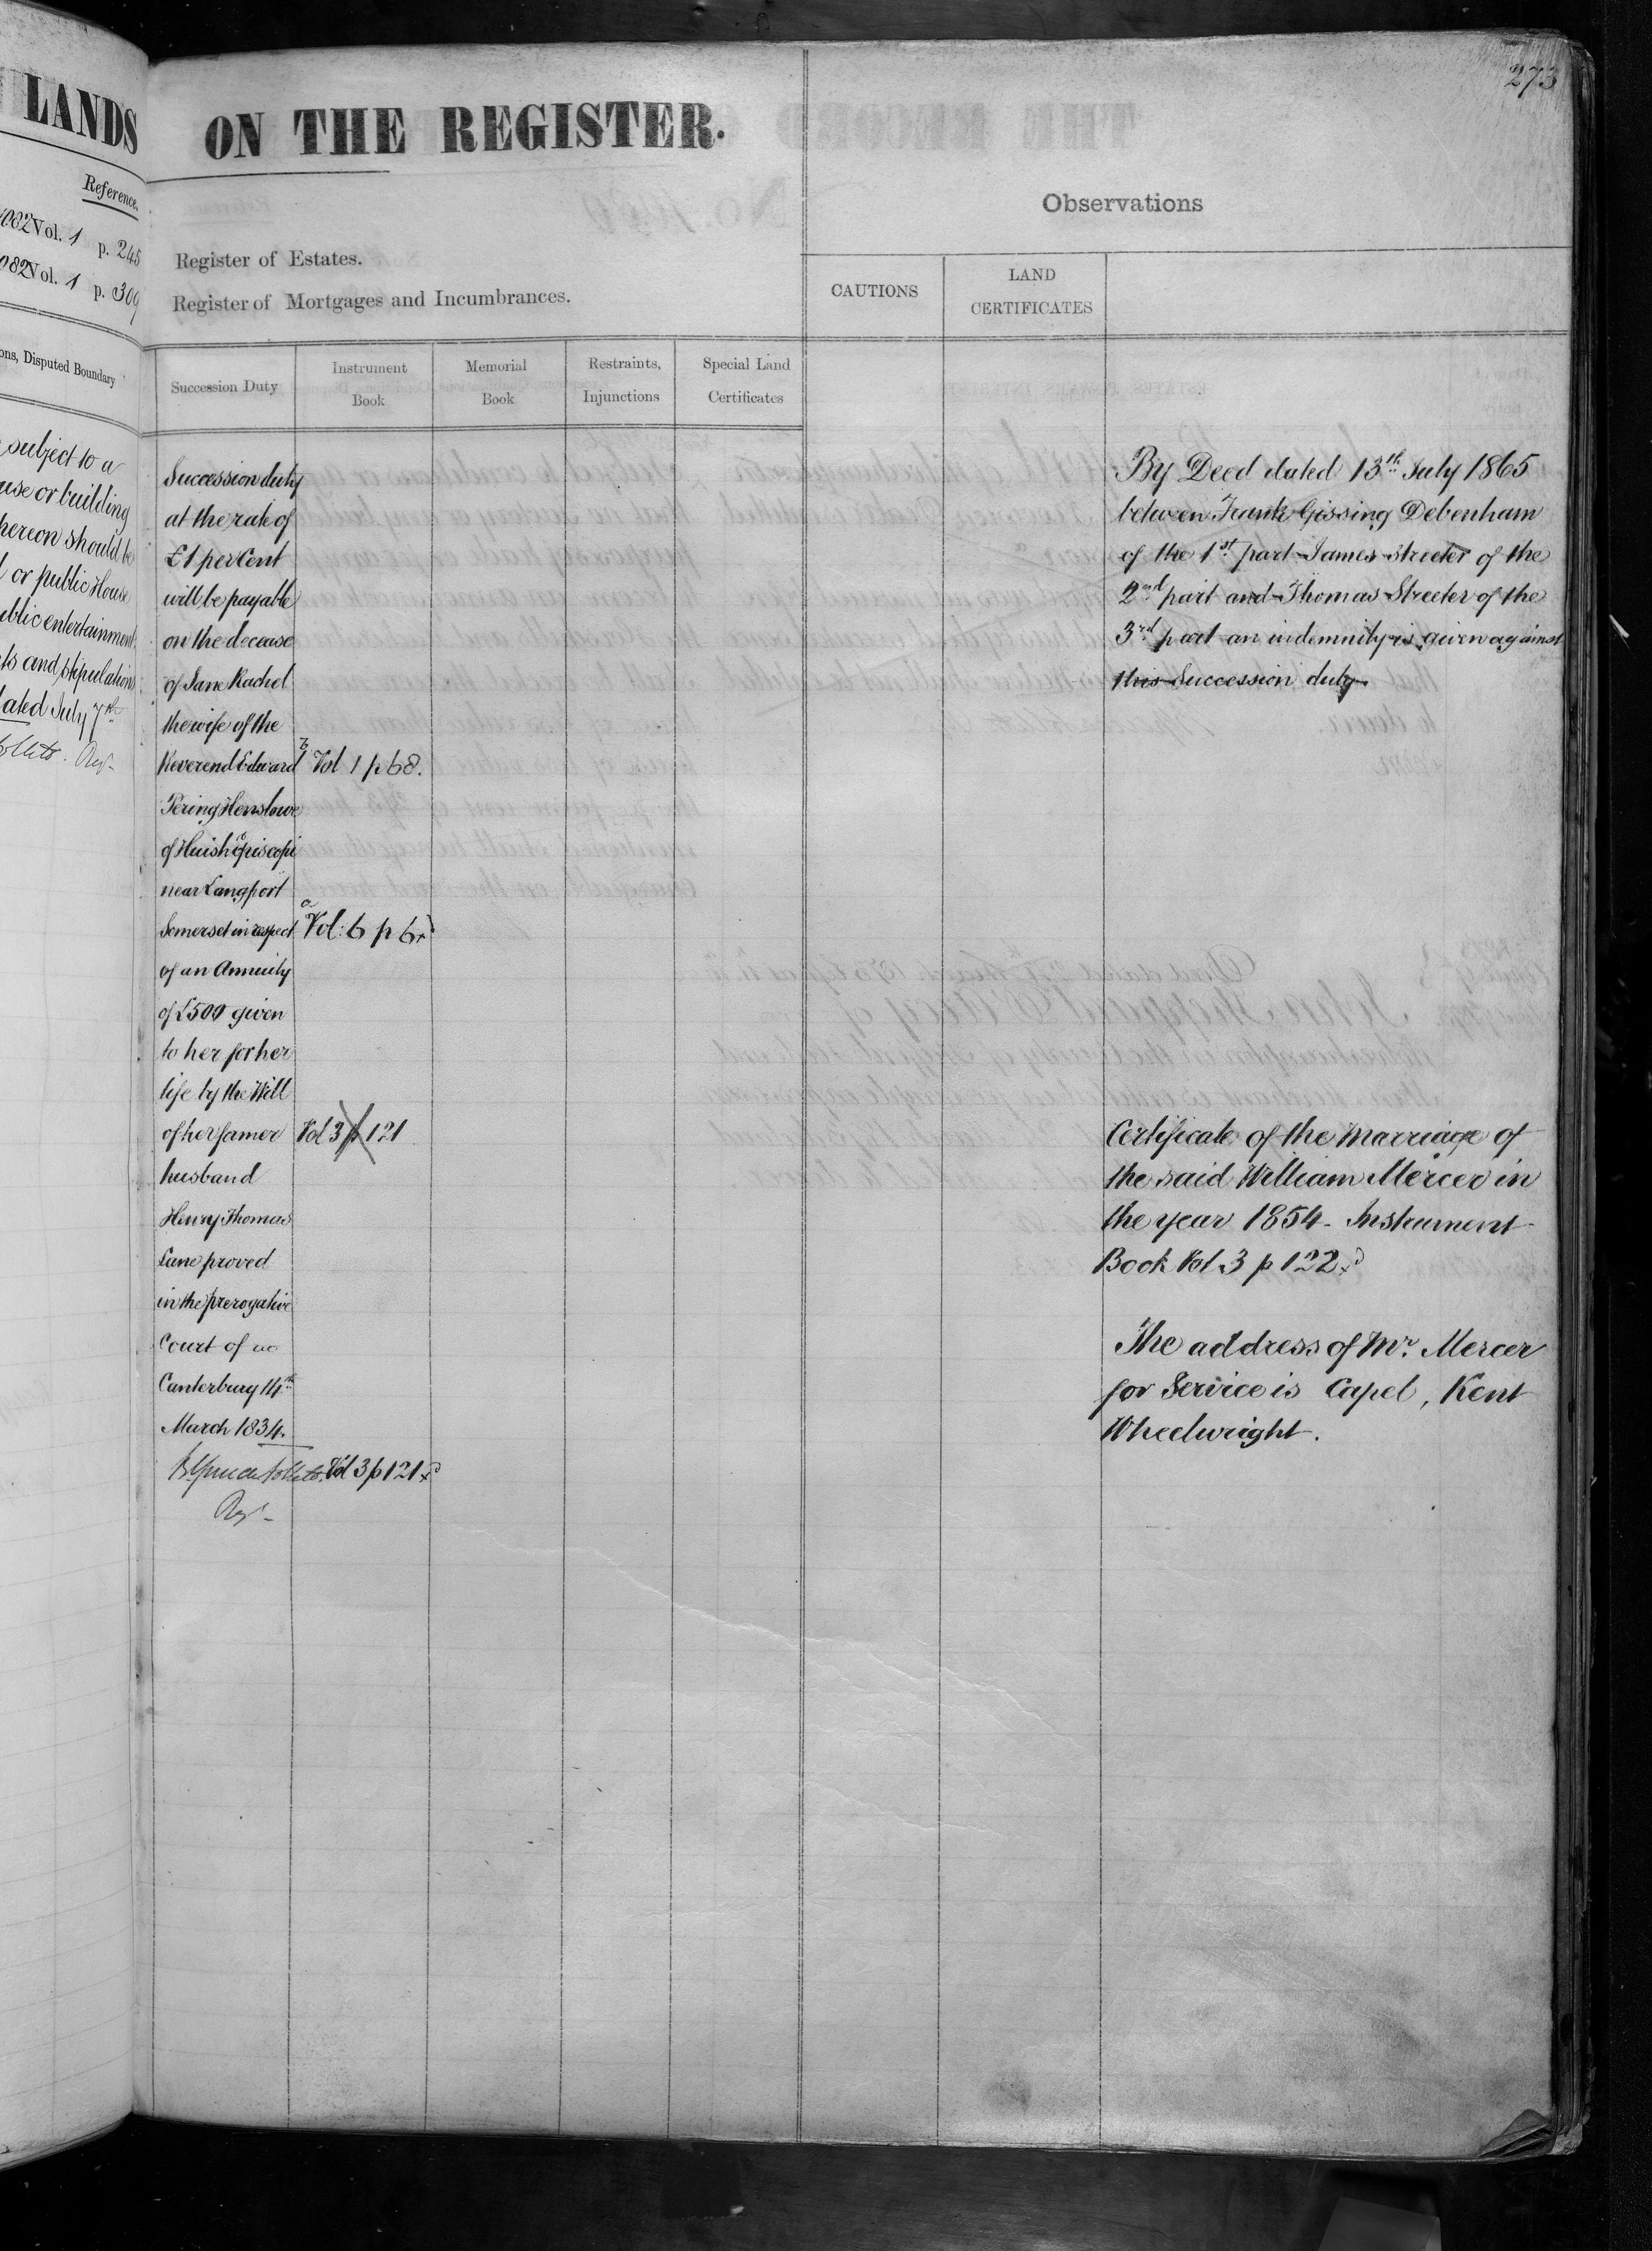 273
LANDS
Reference.
082 Vol. 1 p. 245
082 Vol. 1 p. 309
ons, Disputed Boundary
subject to a
use or building
hereon should be
or public House
ublic entertainment
ts and stipulations
dated July 7th
Regr
ON THE REGISTER.
Register of Estates.
Register of Mortgages and Incumbrances.
Observations
CAUTIONS
LAND
CERTIFICATES
Succession Duty
Instrument
Book
Memorial
Book
Restraints,
Injunctions
Special Land
Certificates
Succession duty
at the rate of
£1 per Cent
will be payable
on the decease
of Jane Rachel
the wife of the
Reverend Edward
Pering Henslowe
of Huish Episcopi
near Langport
Somerset in respect
of an Annuity
of £500 given
to her for her
life by the Will
of her former
husband
Henry Thomas
Lane proved
in the prerogative
Court of
Canterbury 14th
March 1834.
Regr
b
Vol 1 p 68.
a
Vol: 6 p 6
Vol 3 p 121
Vol 3 p 121
By Deed dated 13th July 1865
between Frank Gissing Debenham
of the 1st part James Streeter of the
2nd part and Thomas Streeter of the
3rd part an indemnity is given against
this Succession duty
Certificate of the Marriage of
the said William Mercer in
the year 1854 - Instrument
Book Vol 3 p 122
The address of Mr. Mercer
for Service is Capel, Kent
Wheelwright.